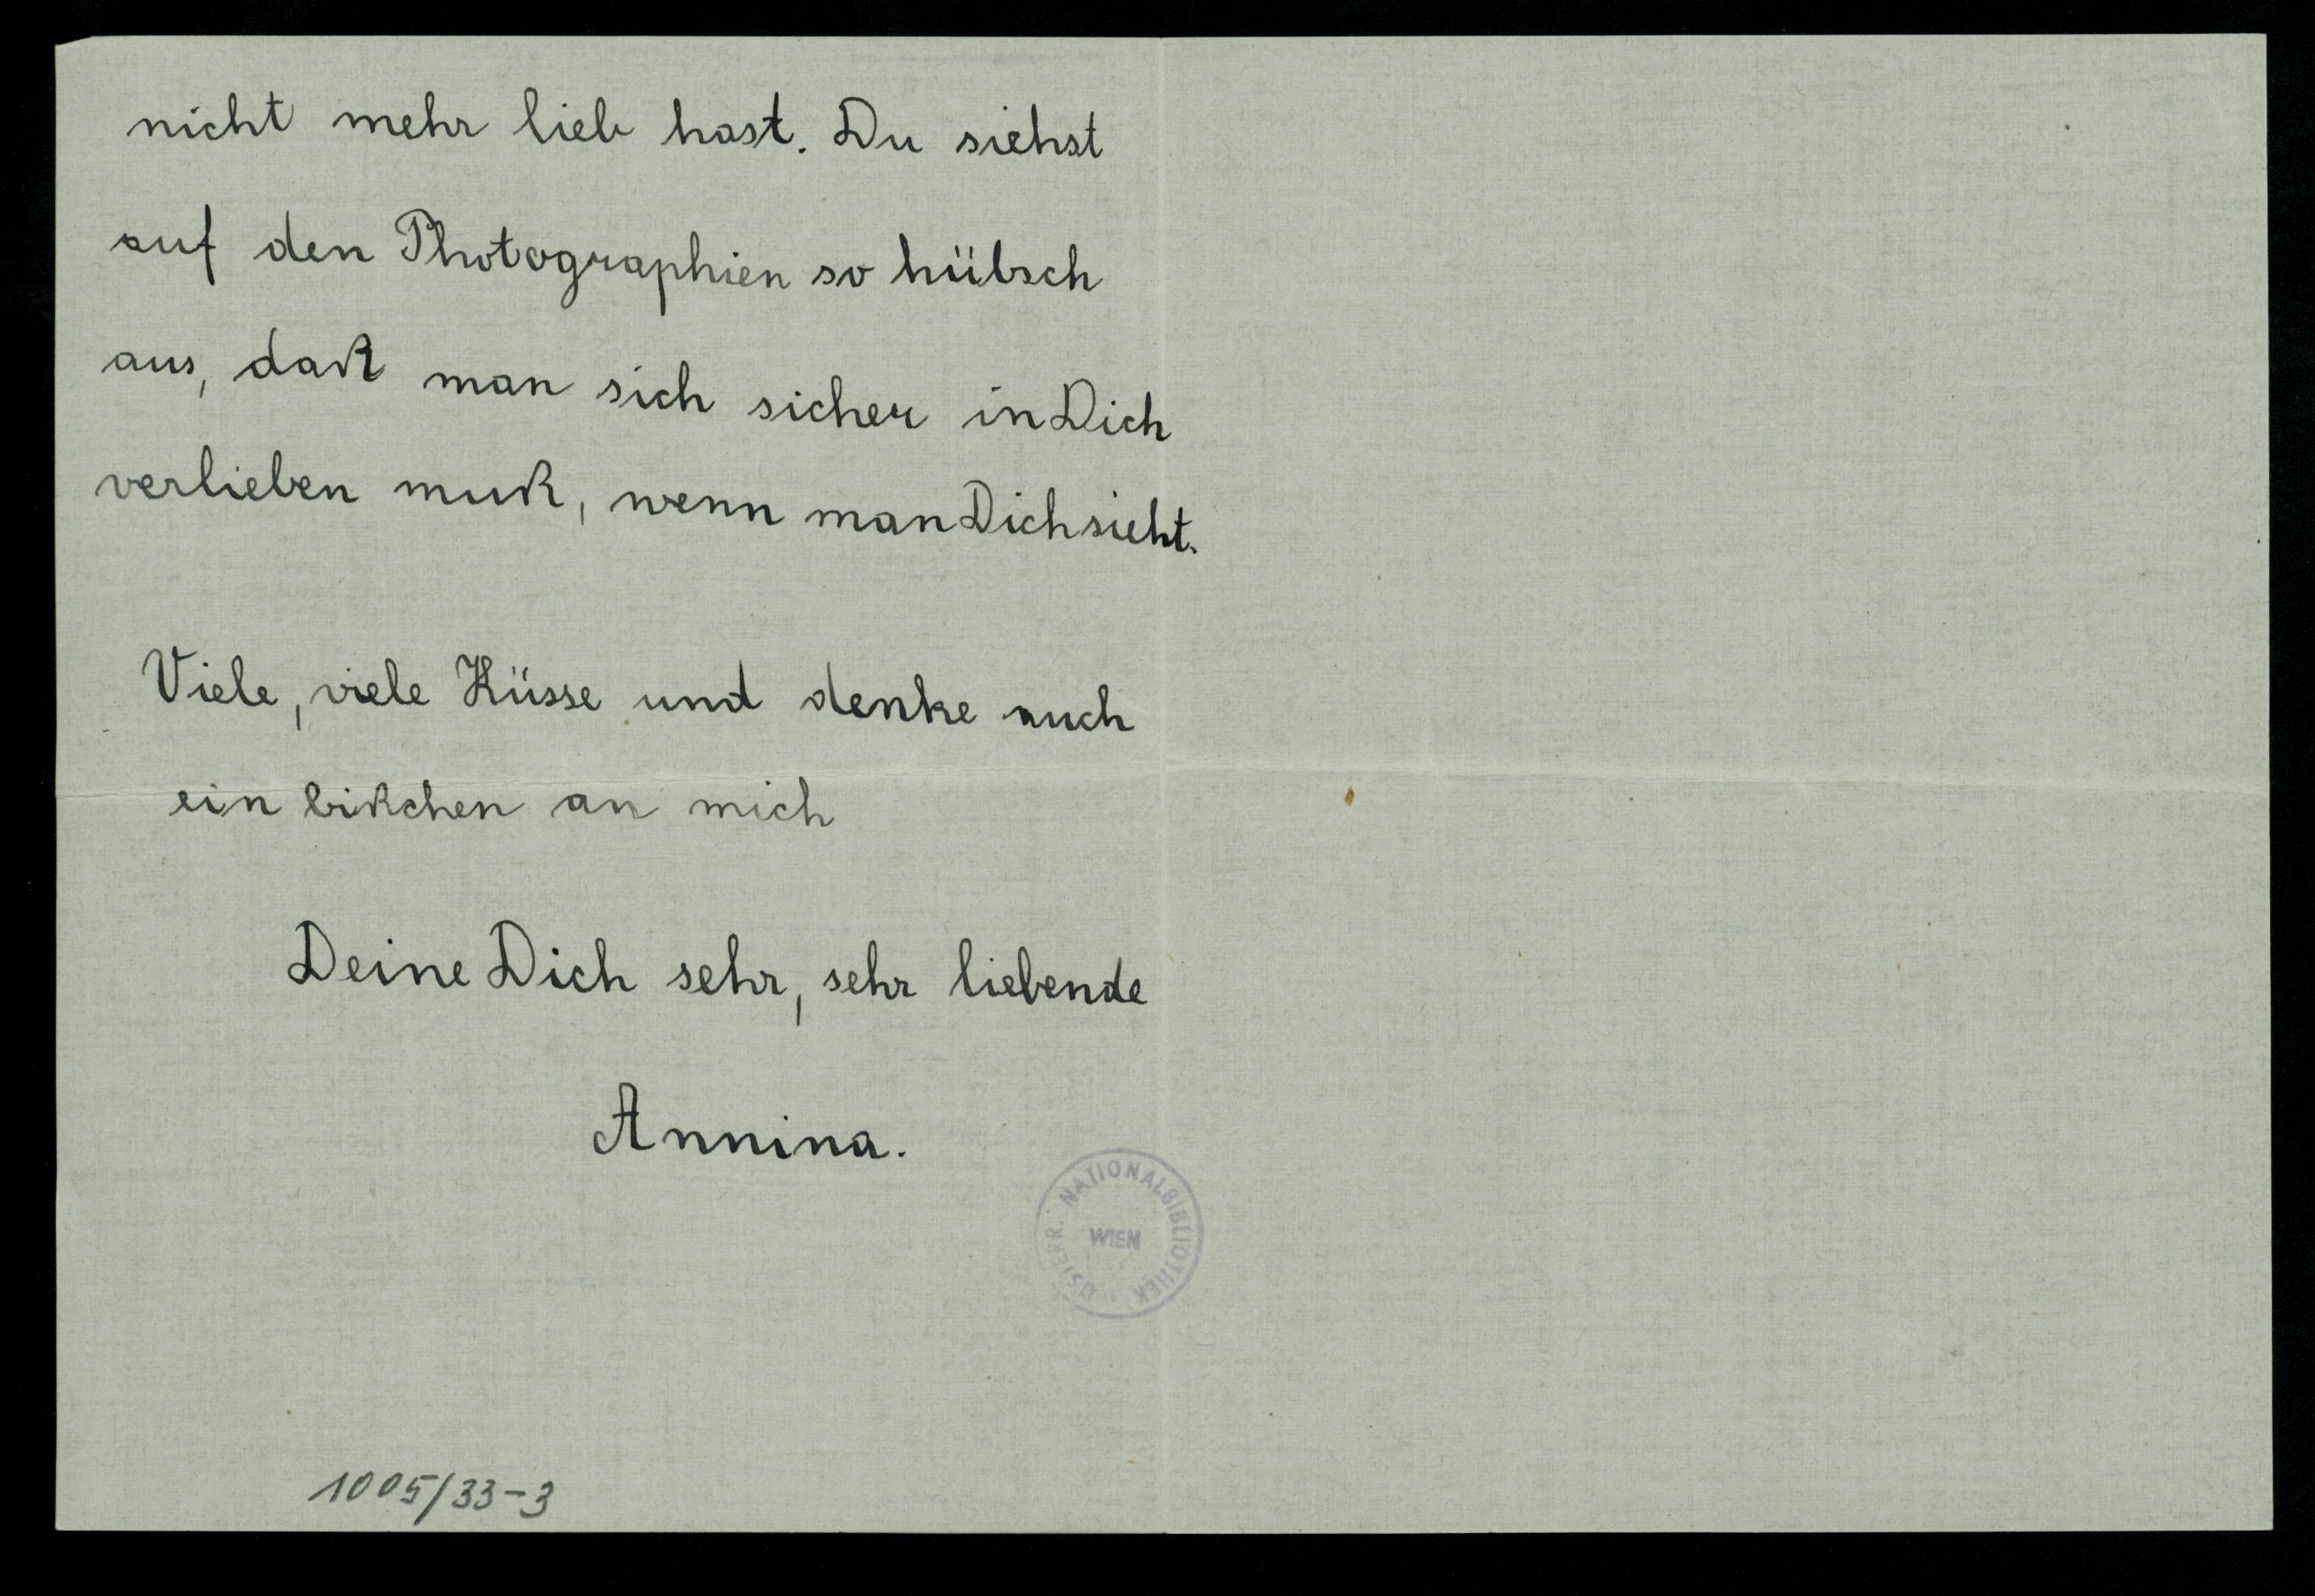 nicht mehr lieb hast. Du siehst
auf den Photographien so hübsch
aus, daß man sich sicher in Dich
verlieben muß, wenn man Dich sieht.
Viele, viele Küsse und denke auch
ein bißchen an mich
Deine Dich sehr, sehr liebende
Annina.
ÖSTERR. NATIONALBIBLIOTHEK
WIEN
1005/33-3